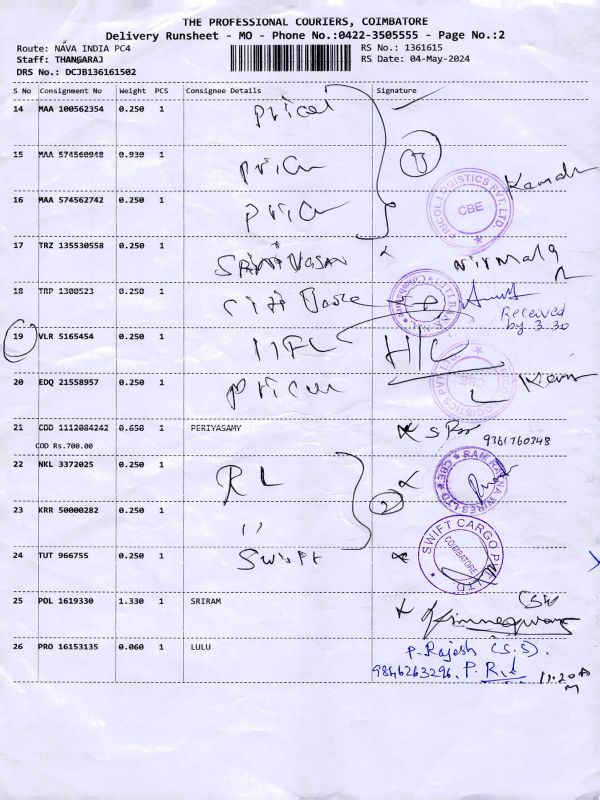 THE PROFESSIONAL COURIERS, COIMBATORE
Delivery Runsheet - MO - Phone No.:0422-3505555 - Page No.:2
Route: NAVA INDIA PC4 RS No.: 1361615
Staff: THANGARAJ RS Date: 04-May-2024
DRS No.: DCJB136161502
S No Consignment No Weight PCS Consignee Details Signature
14 MAA 100562354 0.250 1 Pricol
15 MAA 574560948 0.930 1
1
PRICOL LOGISTICS PVT. LTD. CBE
16 MAA 574562742 0.250 1
17 TRZ 135530558 0.250 1 Nirmala
18 TRP 1300523 0.250 1 CITI BANK
Received
by 3.30
19 VLR 5165454 0.250 1 IIFL H/C
20 EDQ 21558957 0.250 1 LOGISTICS PVT. CBE
21 COD 1112084242 0.650 1 PERIYASAMY
9361760348
COD Rs.700.00
22 NKL 3372025 0.250 1 RL
2
23 KRR 50000282 0.250 1 "
24 TUT 966755 0.250 1 Swift SWIFT CARGO PVT LTD COIMBATORE
25 POL 1619330 1.330 1 SRIRAM
26 PRO 16153135 0.060 1 LULU P. Rajesh (S.S).
9846263296. P. R
11.20 A
M